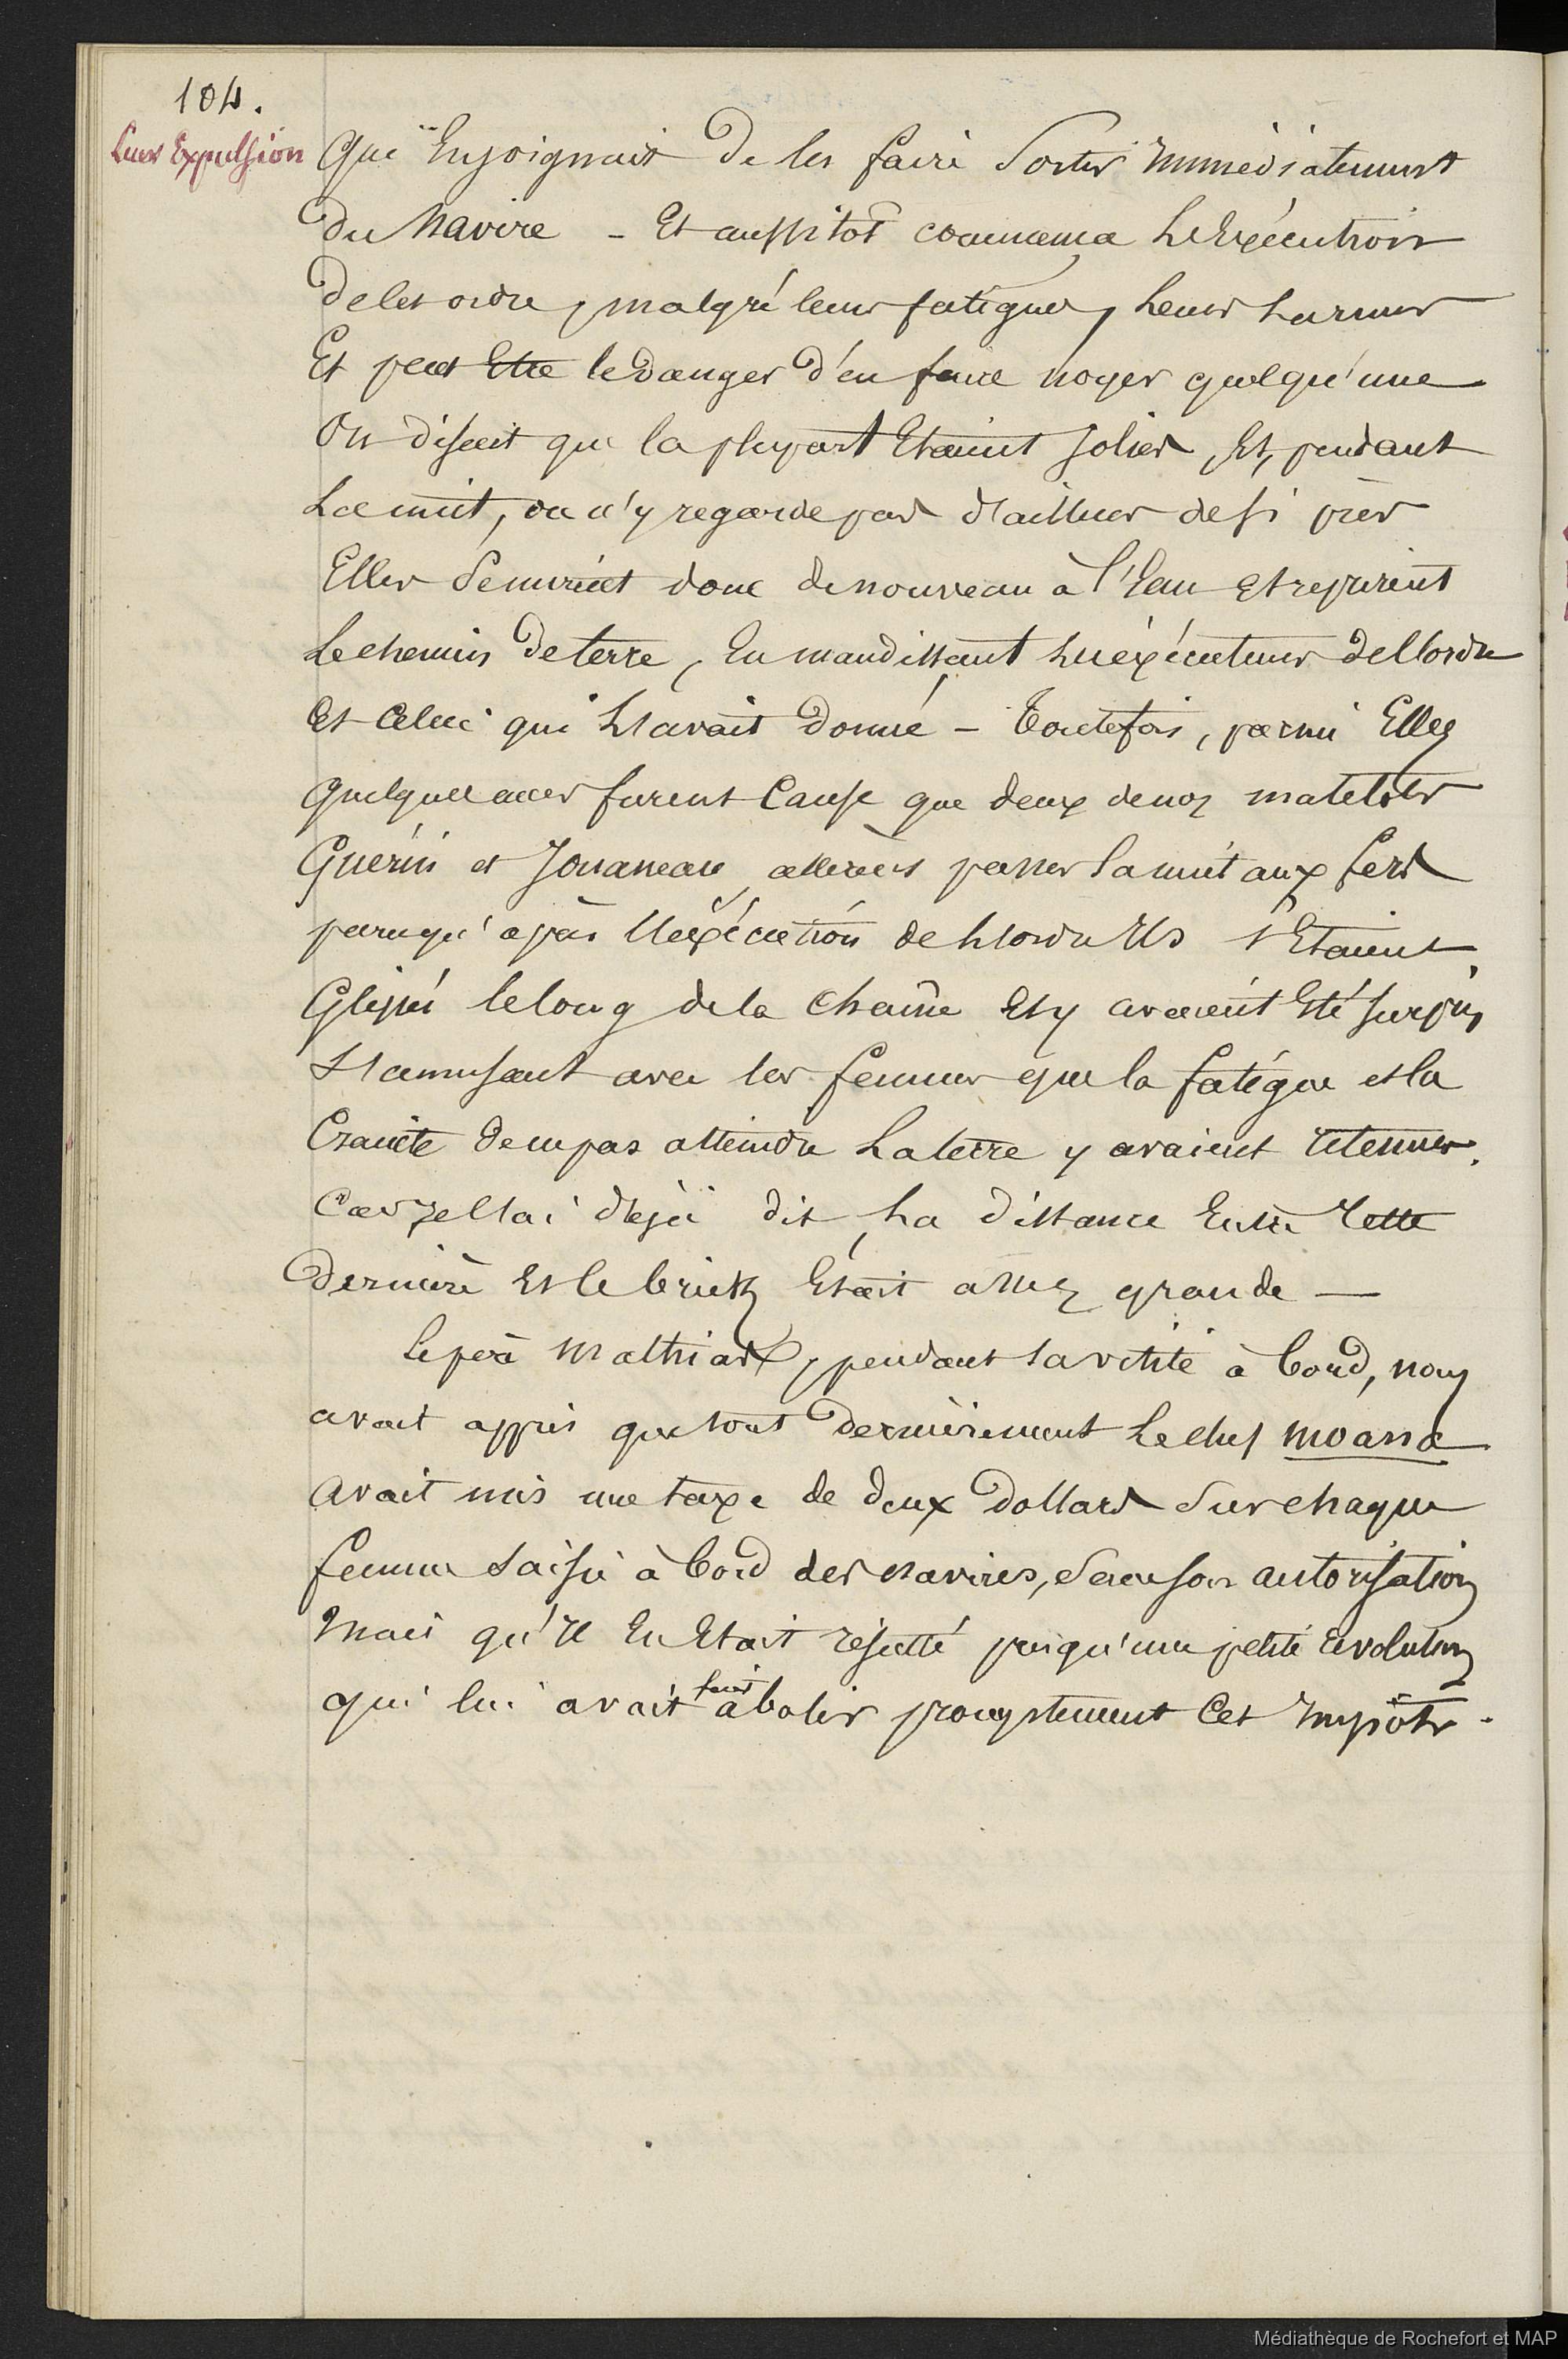 104.
Leur Expulsion
Qui Enjoignait de les faire Sortir Immédiatement
du Navire - Et aussitot commença L'Exécution
de cet ordre, malgré leurs fatigues, Leurs Larmes
Et peut Etre le danger d'en faire noyer quelqu'une
On disait que la plupart Etaient Jolies, Et, pendant
La nuit, on n'y regarde pas d'ailleurs de si près
Elles se mirent donc de nouveau à l'Eau et reprirent
Le chemin de terre, En maudissant les exécuteurs de l'ordre
Et Celui qui L'avait donné - Toutefois, parmi Elles
quelques unes furent Cause que deux de nos matelots
Guérin et Jouaneau, allèrent passer la nuit aux fers
parcequ'après l'exécution de L'ordre Ils s'Etaient
Glissés le long de la Chaîne Et y avaient Eté surpris
S'amusant avec les femmes que la fatigue et la
Crainte de ne pas atteindre La terre y avaient retenues.
Car Je l'ai déjà dit, La distance Entre Cette
Dernière Et le brick Etait assez grande —
Le père Mathias, pendant sa visite à bord, nous
avait appris que tout Dernièrement Le chef Moana
avait mis une taxe de deux Dollars Sur chaque
femme Saisie à bord des Navires, Sans son autorisation
Mais qu'Il En Etait résulté presqu'une petite révolution
qui lui avait fait abolir promptement Cet Impôts.
Médiathèque de Rochefort et MAP